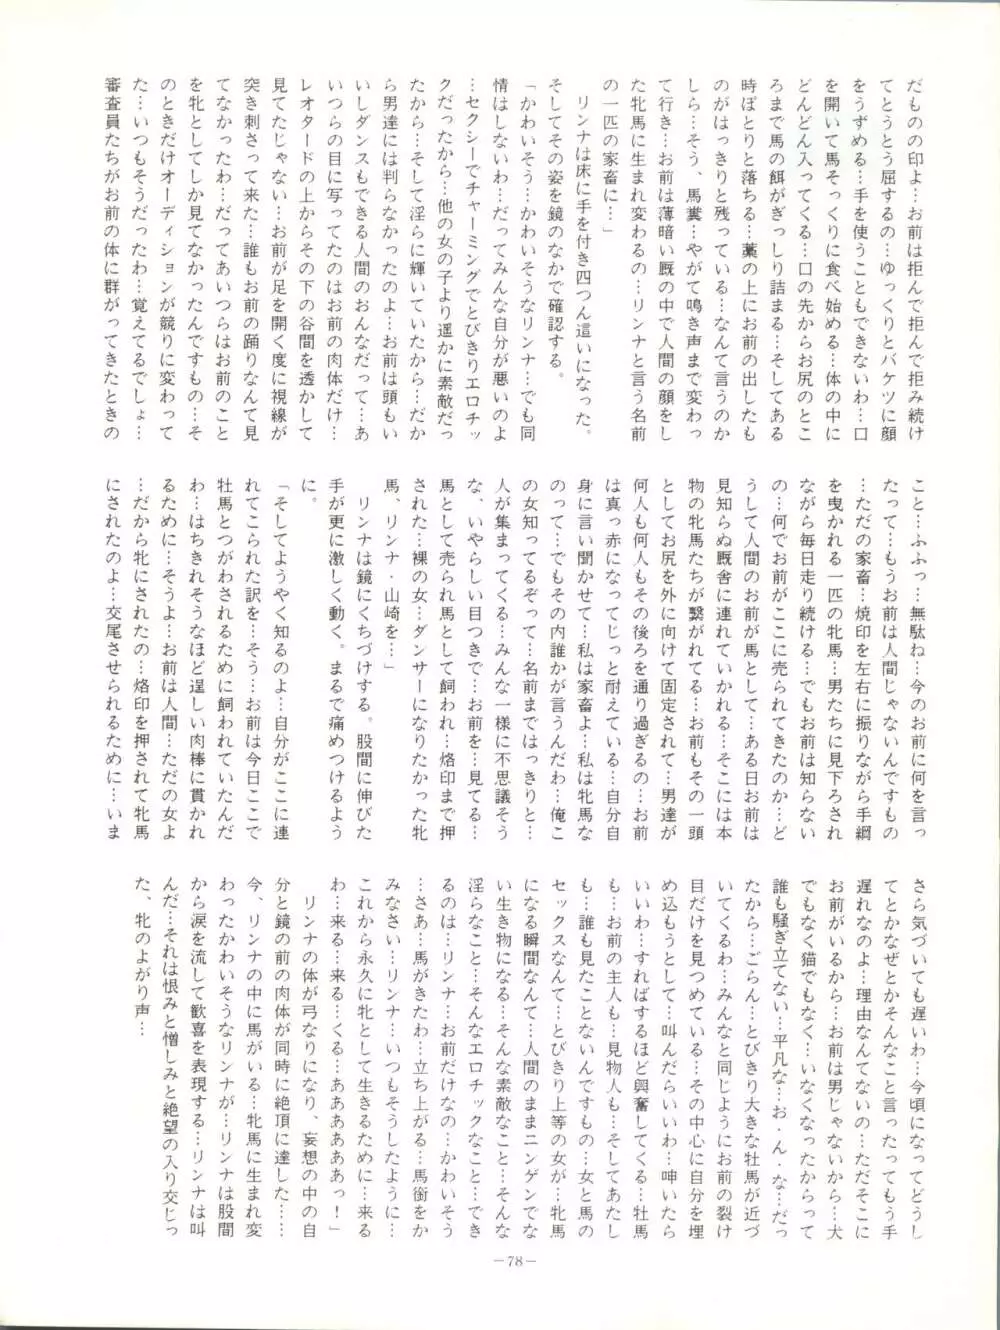 だものの印よ…お前は拒んで拒んで拒み続け
てとうとう屈するの…ゆっくりとバケツに顔
をうずめる…手を使うこともできないわ…口
を開いて馬そっくりに食べ始める…体の中に
どんどん入ってくる…口の先からお尻のとこ
ろまで馬の餌がぎっしり詰まる…そしてある
時ぼとりと落ちる…藁の上にお前の出したも
のがはっきりと残っている…なんて言うのか
しら…そう、馬糞…やがて鳴き声まで変わっ
て行き…お前は薄暗い厩の中で人間の顔をし
た牝馬に生まれ変わるの…リンナと言う名前
の一匹の家畜に…」
　リンナは床に手を付き四つん這いになった。
そしてその姿を鏡のなかで確認する。
「かわいそう…かわいそうなリンナ…でも同
情はしないわ…だってみんな自分が悪いのよ
…セクシーでチャーミングでとびきりエロチッ
クだったから…他の女の子より遥かに素敵だっ
たから…そして淫らに輝いていたから…だか
ら男達には判らなかったのよ…お前は頭もい
いしダンスもできる人間のおんなだって…あ
いつらの目に写ってたのはお前の肉体だけ…
レオタードの上からその下の谷間を透かして
見てたじゃない…お前が足を開く度に視線が
突き刺さって来た…誰もお前の踊りなんて見
てなかったわ…だってあいつらはお前のこと
を牝としてしか見てなかったんですもの…そ
のときだけオーディションが競りに変わって
た…いつもそうだったわ…覚えてるでしょ…
審査員たちがお前の体に群がってきたときの
こと…ふふっ…無駄ね…今のお前に何を言っ
たって…もうお前は人間じゃないんですもの
…ただの家畜…焼印を左右に振りながら手綱
を曳かれる一匹の牝馬…男たちに見下ろされ
ながら毎日走り続ける…でもお前は知らない
の…何でお前がここに売られてきたのか…ど
うして人間のお前が馬として…ある日お前は
見知らぬ厩舎に連れていかれる…そこには本
物の牝馬たちが繫がれてる…お前もその一頭
としてお尻を外に向けて固定されて…男達が
何人も何人もその後ろを通り過ぎるの…お前
は真っ赤になってじっと耐えている…自分自
身に言い聞かせて…私は家畜よ…私は牝馬な
のって…でもその内誰かが言うんだわ…俺こ
の女知ってるぞって…名前まではっきりと…
人が集まってくる…みんな一様に不思議そう
な、いやらしい目つきで…お前を…見てる…
馬として売られ馬として飼われ…烙印まで押
された…裸の女…ダンサーになりたかった牝
馬、リンナ・山崎を…」
　リンナは鏡にくちづけする。股間に伸びた
手が更に激しく動く。まるで痛めつけるよう
に。
「そしてようやく知るのよ…自分がここに連
れてこられた訳を…そう…お前は今日ここで
牡馬とつがわされるために飼われていたんだ
わ…はちきれそうなほど逞しい肉棒に貫かれ
るために…そうよ…お前は人間…ただの女よ
…だから牝にされたの…烙印を押されて牝馬
にされたのよ…交尾させられるために…いま
さら気づいても遅いわ…今頃になってどうし
てとかなぜとかそんなこと言ったってもう手
遅れなのよ…理由なんてないの…ただそこに
お前がいるから…お前は男じゃないから…犬
でもなく猫でもなく…いなくなったからって
誰も騒ぎ立てない…平凡な…お.ん.な…だっ
たから…ごらん…とびきり大きな牡馬が近づ
いてくるわ…みんなと同じようにお前の裂け
目だけを見つめている…その中心に自分を埋
め込もうとして…叫んだらいいわ…呻いたら
いいわ…すればするほど興奮してくる…牡馬
も…お前の主人も…見物人も…そしてあたし
も…誰も見たことないんですもの…女と馬の
セックスなんて…とびきり上等の女が…牝馬
になる瞬間なんて…人間のままニンゲンでな
い生き物になる…そんな素敵なこと…そんな
淫らなこと…そんなエロチックなこと…でき
るのは…リンナ…お前だけなの…かわいそう
…さあ…馬がきたわ…立ち上がる…馬銜をか
みなさい…リンナ…いつもそうしたように…
これから永久に牝として生きるために…来る
わ…来る…来る…くる…ああああああっ！」
　リンナの体が弓なりになり、妄想の中の自
分と鏡の前の肉体が同時に絶頂に達した……
今、リンナの中に馬がいる…牝馬に生まれ変
わったかわいそうなリンナが…リンナは股間
から涙を流して歓喜を表現する…リンナは叫
んだ…それは恨みと憎しみと絶望の入り交じっ
た、牝のよがり声…
—78—